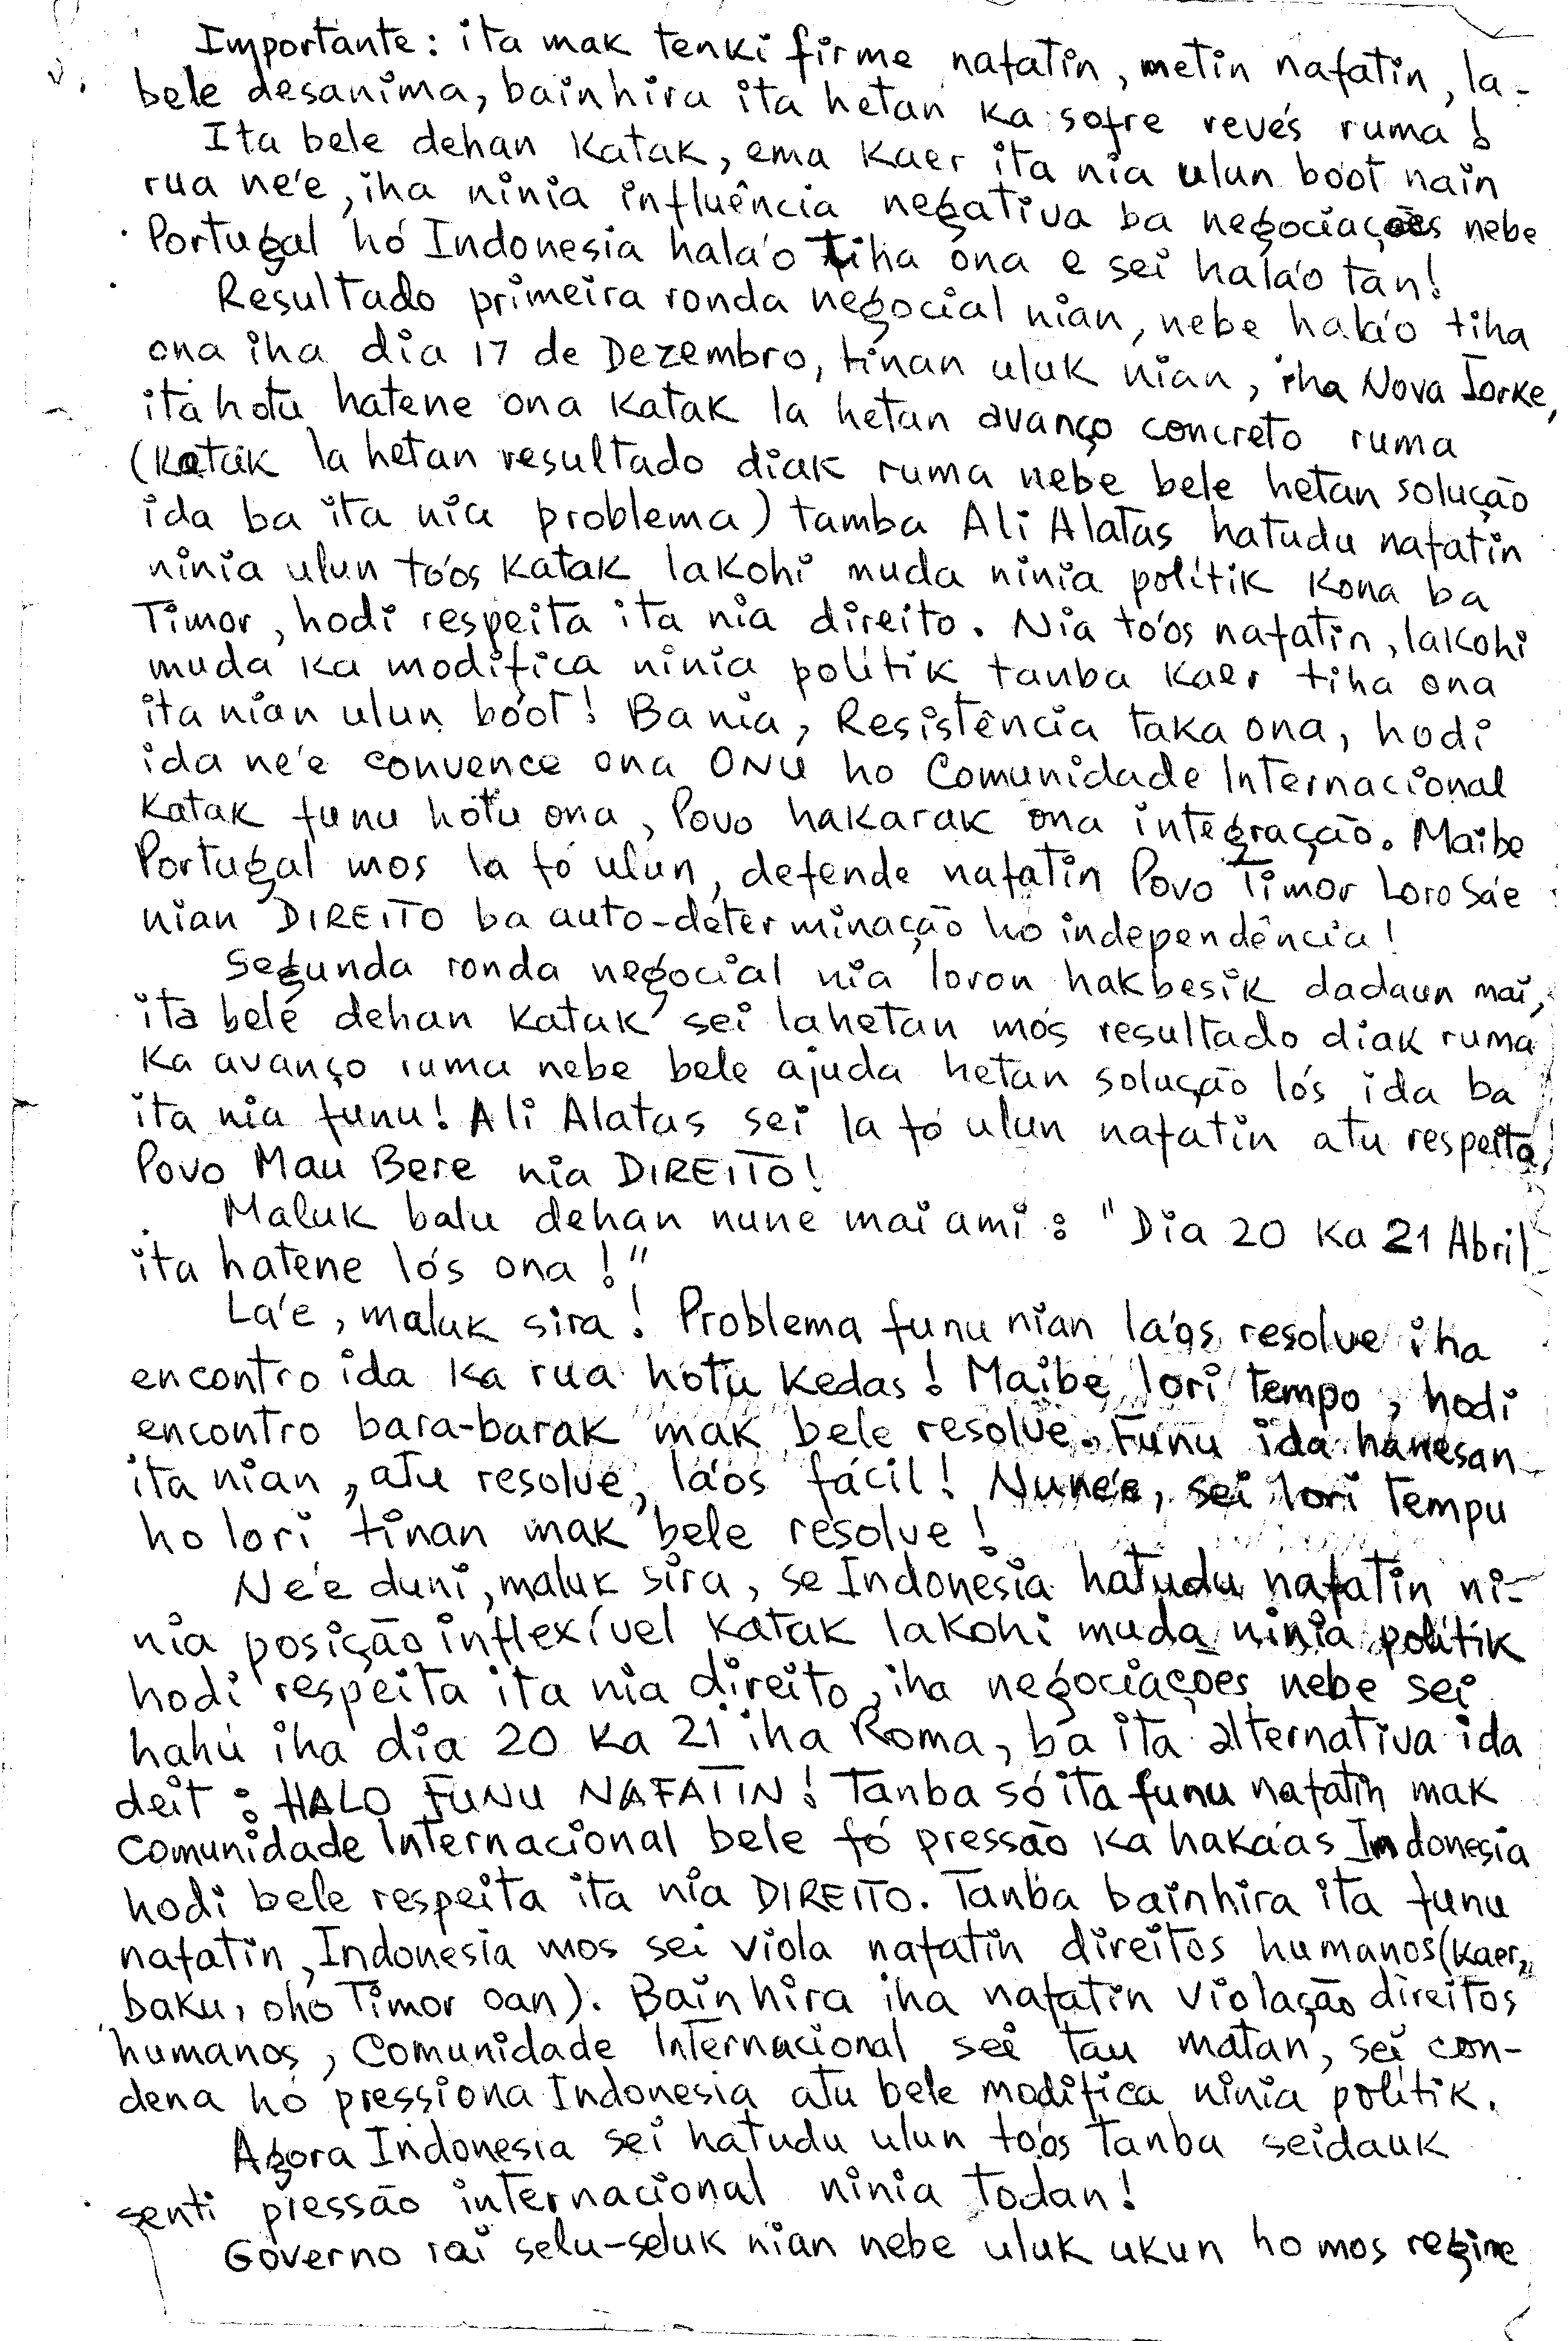 Importante: ita mak tenki firme nafatin, metin nafatin, la-
bele desanima, bainhira ita hetan ka sofre revés ruma!
Ita bele dehan katak, ema kaer ita nia ulun bo'ot nain
rua ne'e, iha ninia influência negativa ba negociações nebe
Portugal hó Indonesia hala'o tiha ona e sei hala'o tan!
Resultado primeira ronda negocial nian, nebe hala'o tiha
ona iha dia 17 de Dezembro, tinan uluk nian, iha Nova Iorke,
ita hotu hatene ona katak la hetan avanço concreto ruma
(katak la hetan resultado diak ruma nebe bele hetan solução
ida ba ita nia problema) tamba Ali Alatas hatudu nafatin
ninia ulun to'os katak lakohi muda ninia polítik kona ba
Timor, hodi respeita ita nia direito. Nia to'os nafatin, lakohi
muda ka modifica ninia polítik tanba kaer tiha ona
ita nian ulun bo'ot! Ba nia, Resistência taka ona, hodi
ida ne'e convence ona ONU ho Comunidade Internacional
katak funu hotu ona, Povo hakarak ona integração. Maibe
Portugal mos la fó ulun, defende nafatin Povo Timor Loro Sa'e
nian DIREITO ba auto-determinação ho independência!
Segunda ronda negocial nia loron hakbesik dadaun mai,
ita bele dehan katak sei lahetan mós resultado diak ruma
ka avanço ruma nebe bele ajuda hetan solução lós ida ba
ita nia funu! Ali Alatas sei la fó ulun nafatin atu respeita
Povo Mau Bere nia DIREITO!
Maluk balu dehan nune mai ami: "Dia 20 ka 21 Abril
ita hatene lós ona!"
La'e, maluk sira! Problema funu nian la'os resolve iha
encontro ida ka rua hotu kedas! Maibe lori tempo, hodi
encontro bara-barak mak bele resolve. Funu ida hanesan
ita nian, atu resolve, la'os fácil! Nune'e, sei lori tempu
ho lori tinan mak bele resolve!
Ne'e duni, maluk sira, se Indonesia hatudu nafatin ni-
nia posição inflexível katak lakohi muda ninia polítik
hodi respeita ita nia direito, iha negociações nebe sei
hahú iha dia 20 ka 21 iha Roma, ba ita alternativa ida
deit: HALO FUNU NAFATIN! Tanba só ita funu nafatin mak
Comunidade Internacional bele fó pressão ka haka'as Indonesia
hodi bele respeita ita nia DIREITO. Tanba bainhira ita funu
nafatin, Indonesia mos sei viola nafatin direitos humanos (kaer,
baku, oho Timor oan). Bainhira iha nafatin violação direitos
humanos, Comunidade Internacional sei tau matan, sei con-
dena hó pressiona Indonesia atu bele modifica ninia polítik.
Agora Indonesia sei hatudu ulun to'os tanba seidauk
senti pressão internacional ninia todan!
Governo rai selu-seluk nian nebe uluk ukun ho mos regime